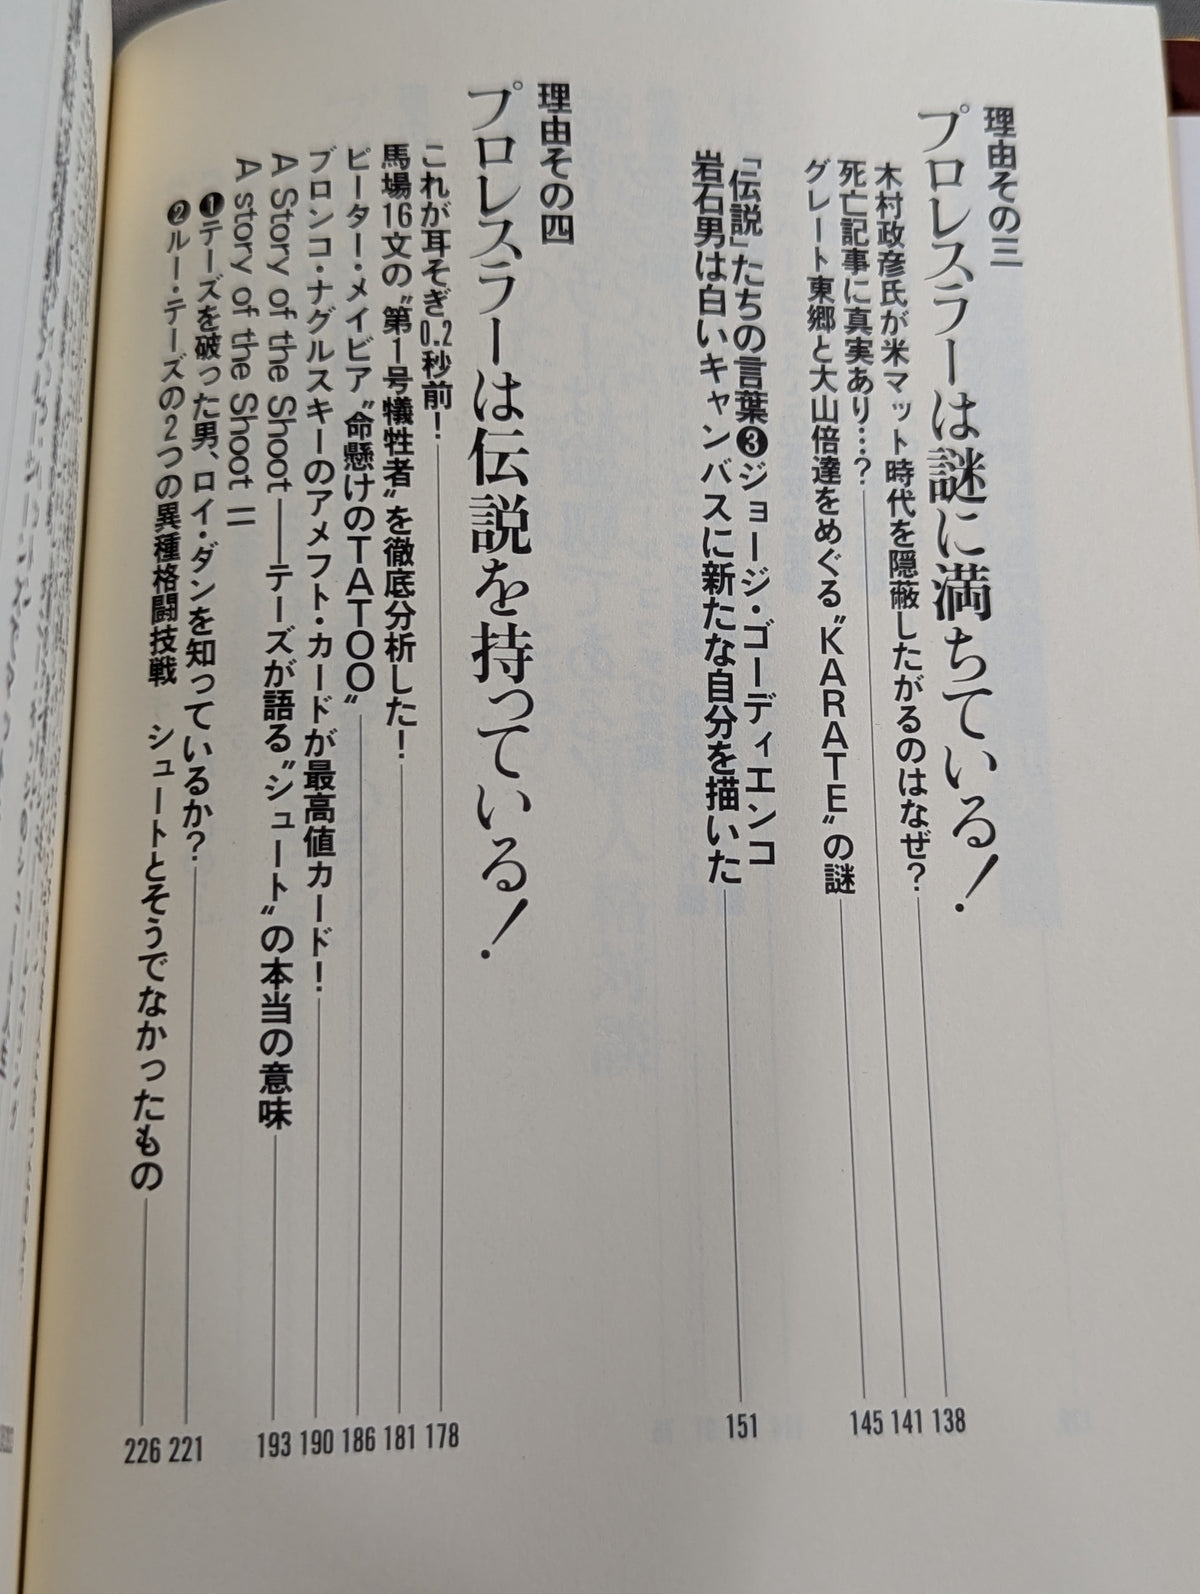 理由その三
プロレスラーは謎に満ちている!
木村政彦氏が米マット時代を隠蔽したがるのはなぜ? 138
死亡記事に真実あり…? 141
グレート東郷と大山倍達をめぐる〝KARATE〟の謎 145
「伝説」たちの言葉❸ジョージ・ゴーディエンコ
岩石男は白いキャンバスに新たな自分を描いた 151
理由その四
プロレスラーは伝説を持っている!
これが耳そぎ0.2秒前! 178
馬場16文の〝第1号犠牲者〟を徹底分析した! 181
ピーター・メイビア〝命懸けのTATOO〟 186
ブロンコ・ナグルスキーのアメフト・カードが最高値カード! 190
A Story of the Shoot──テーズが語る〝シュート〟の本当の意味 193
A story of the Shoot II
❶テーズを破った男、ロイ・ダンを知っているか? 221
❷ルー・テーズの2つの異種格闘技戦 シュートとそうでなかったもの 226